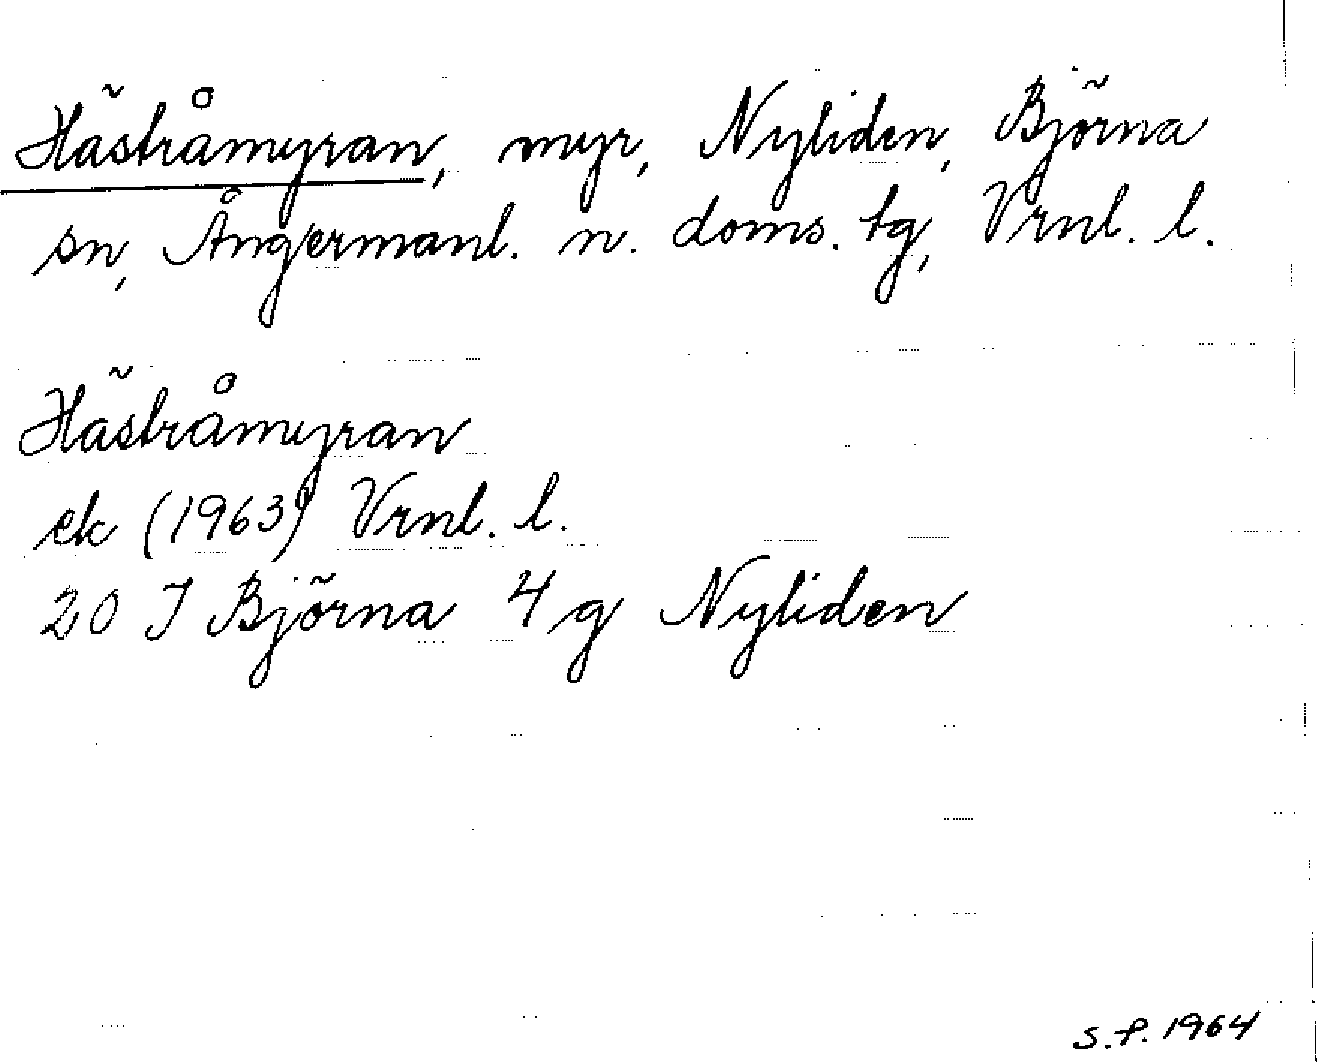 Hästråmyran, myr, Nyliden, Björna
sn, Ångermanl. n. doms. tg, Vrnl. l.
Hästråmyran
ek (1963) Vrnl. l.
20 I Björna 4 g Nyliden
S. P. 1964